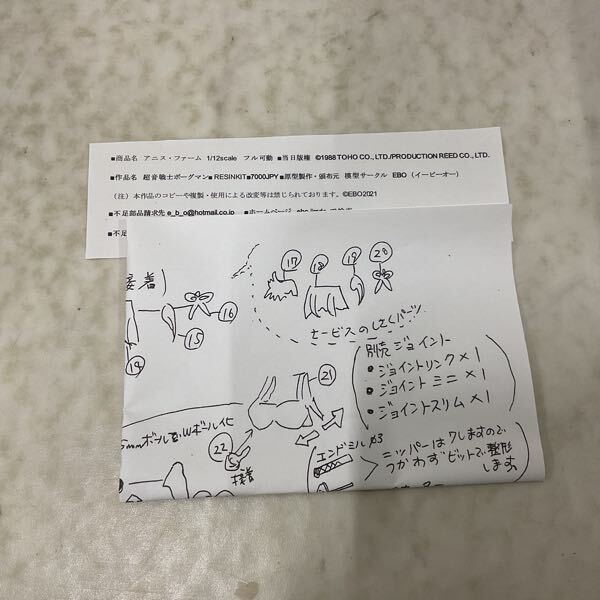 ■商品名 アニス・ファーム 1/12scale フル可動 ■当日版権 ©1988 TOHO CO., LTD./PRODUCTION REED CO., LTD.
■作品名 超音戦士ボーグマン■ RESINKIT■7000JPY ■原型製作・頒布元 模型サークル EBO (イービーオー)
(注) 本作品のコピーや複製・使用による改変等は禁じられております。©EBO2021
■不足部品請求先 e_b_o@hotmail.co.jp ■ホームページ
■不足
接着)
16
15
14
17
18
19
20
サービスのしたくパーツ
別売ジョイント
・ジョイントリンク×1
・ジョイントミニ×1
・ジョイントスリム×1
21
5mmボールをWボール化
22
接着
エンドミル φ3
ニッパーはワレますので
つかわずビットで整形
します